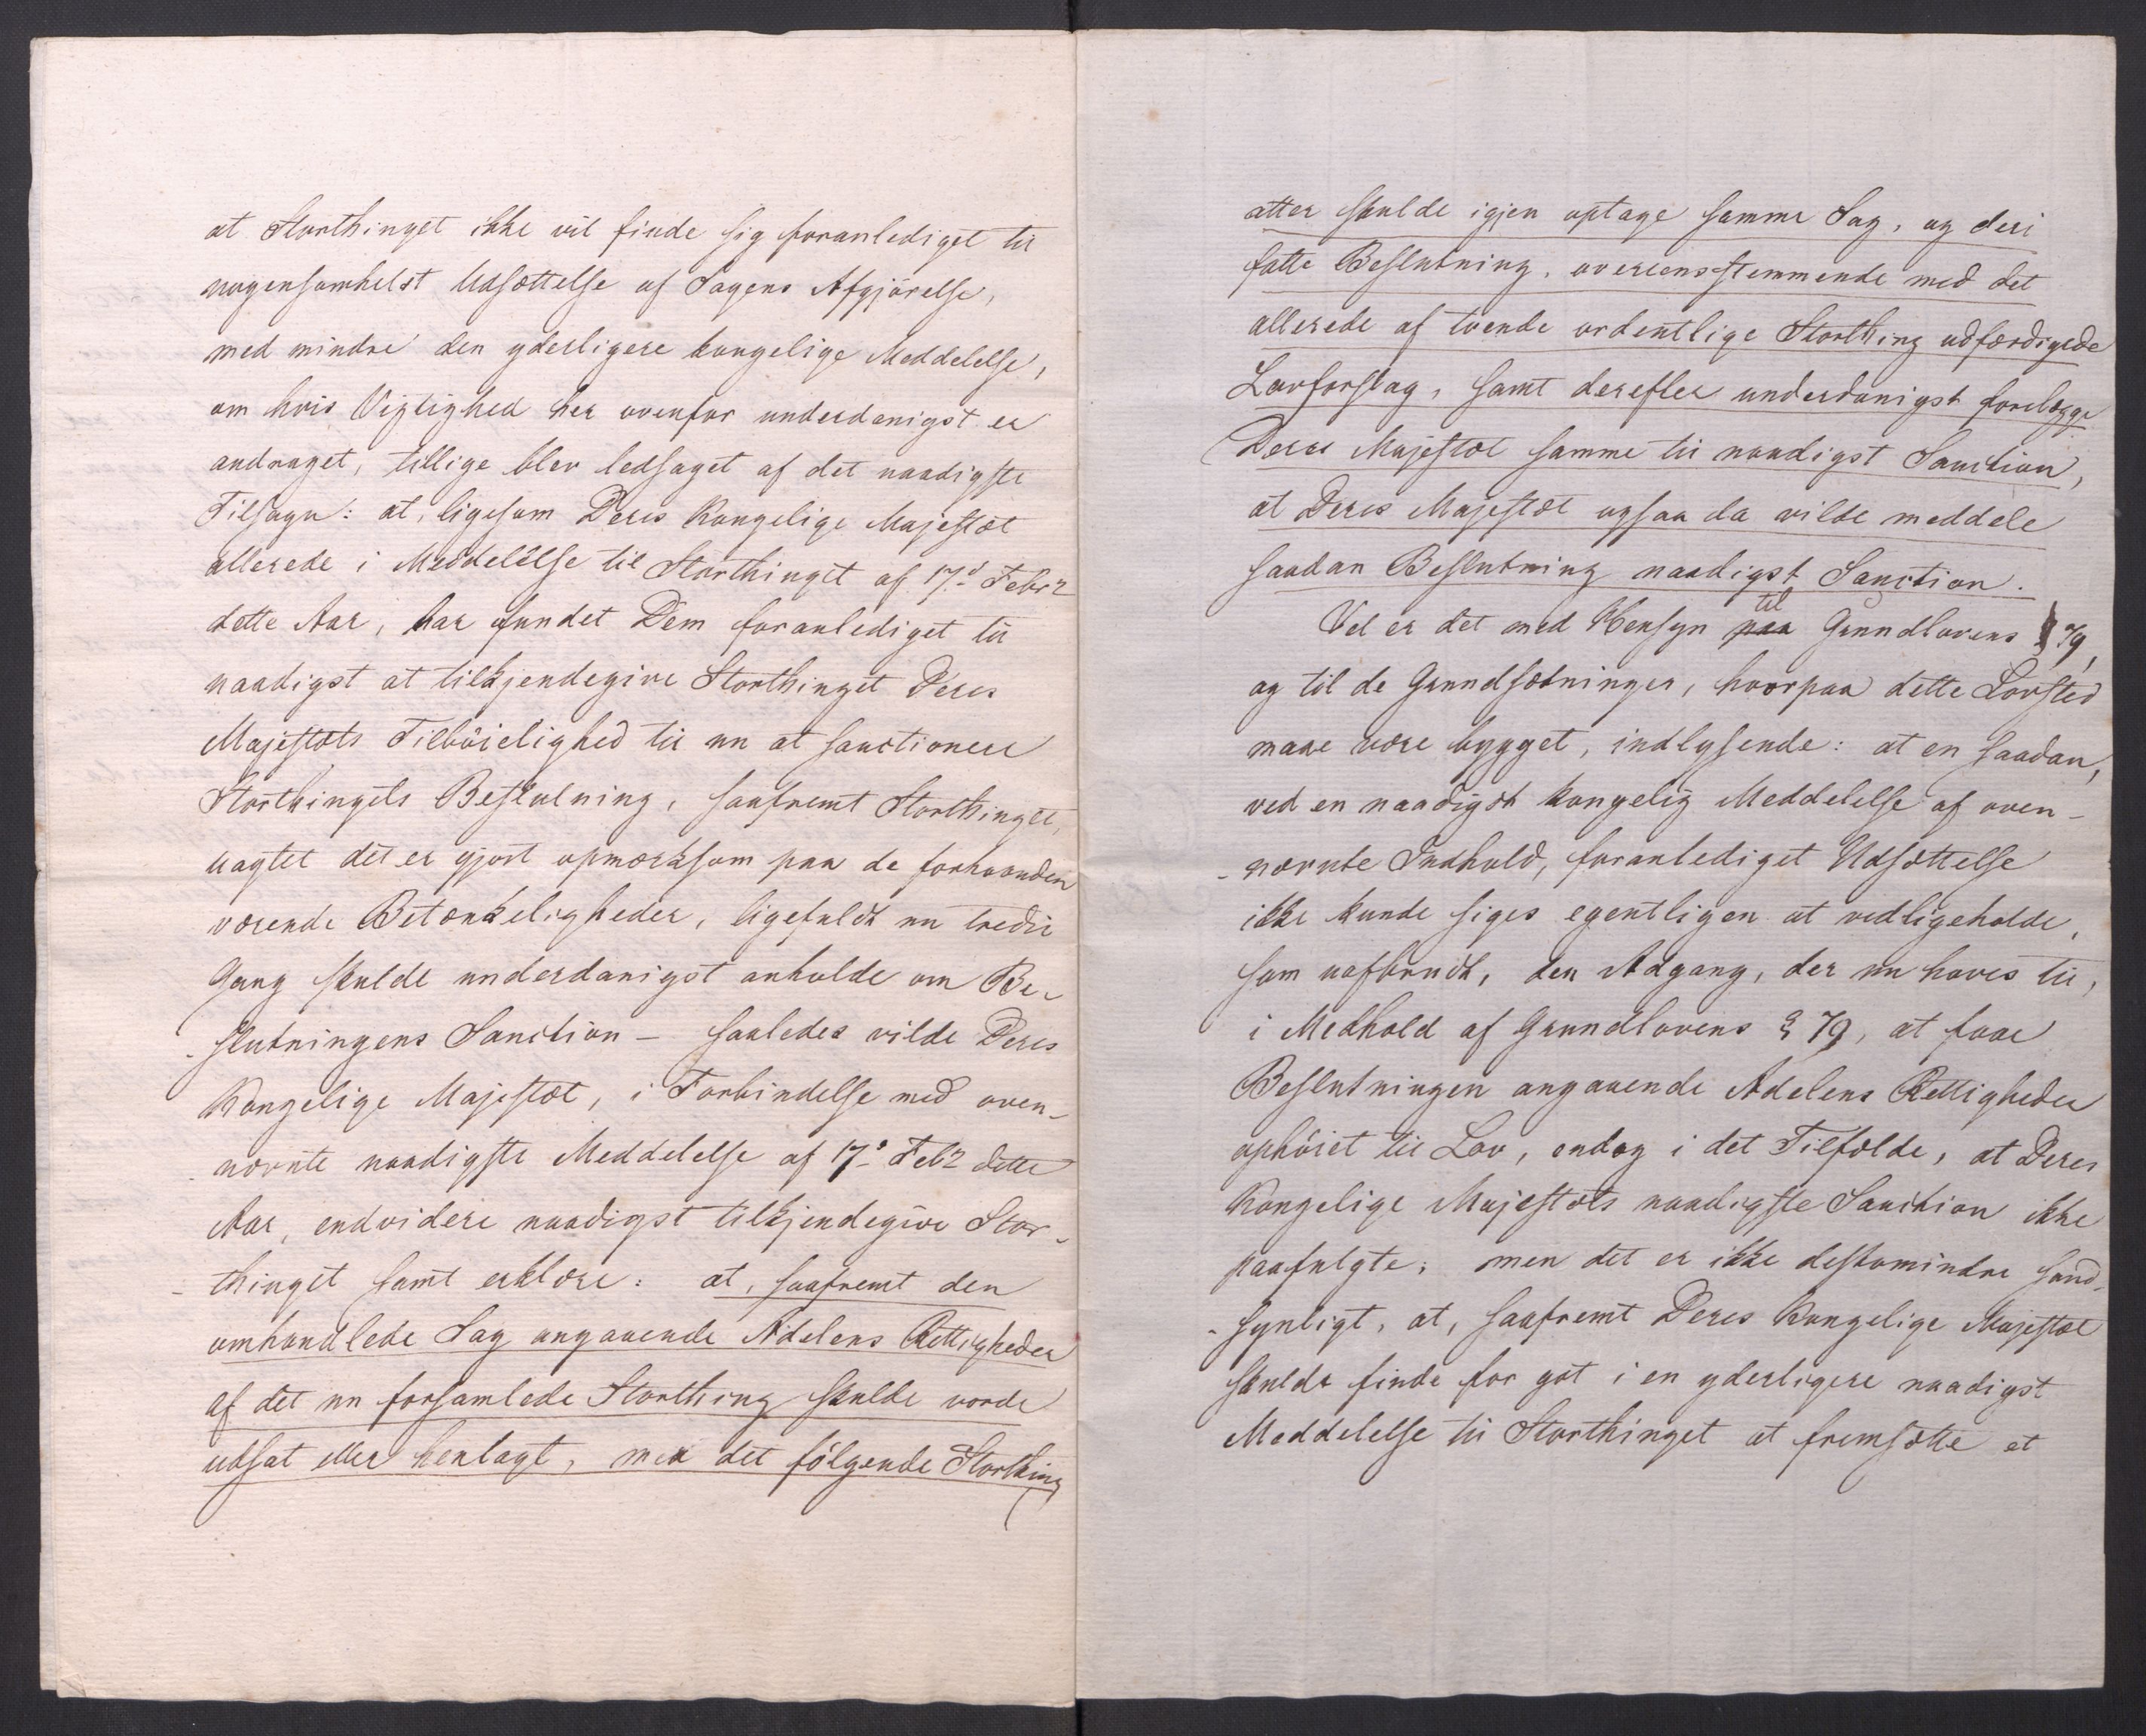 at Storthinget ikke vil finde sig foranlediget til
nogensomhelst Udsættelse af Sagens Afgjörelse,
med mindre den yderligere kongelige Meddelelse,
om hvis Vigtighed her ovenfor underdanigst er
andraget, tillige blev ledsaget af det naadigste
Tilsagn: at, ligesom Deres Kongelige Majestæt
allerede i Meddelelse til Storthinget af 17.d Febr
dette Aar, har fundet Dem foranlediget til
naadigst at tilkjendegive Storthinget Deres
Majestæts Tilböielighed til nu at sanctionere
Storthingets Beslutning, saafremt Storthinget,
uagtet det er gjort opmærksom paa de forhaanden
værende Betænkeligheder, ligefuldt nu tredie
Gang skulde underdanigst anholde om Be-
-slutningens Sanction – saaledes vilde Deres
Kongelige Majestæt, i Forbindelse med oven-
-nævnte naadigste Meddelelse af 17.d Febr dette
Aar, endvidere naadigst tilkjendegive Stor-
-thinget samt erklære: at, saafremt den
omhandlede Sag angaaende Adelens Rettigheder
af det nu forsamlede Storthing skulde vorde
udsat eller henlagt, men det fölgende Storthing
atter skulde igjen optage samme Sag, og deri
fatte Beslutning, overeensstemmende med det
allerede af tvende ordentlige Storthing udfærdigede
Lovforslag, samt derefter underdanigst forelægge
Deres Majestæt samme til naadigst Sanction,
at Deres Majestæt ogsaa da vilde meddele
saadan Beslutning naadigst Sanction.
Vel er det med Hensyn paa til Grundlovens § 79,
og til de Grundsætninger, hvorpaa dette Lovsted
maae være bygget, indlysende: at en saadan,
ved en naadigst kongelig Meddelelse af oven-
-nævnte Indhold, foranlediget Udsættelse
ikke kunde siges egentligen at vedligeholde,
som uafbrudt, den Adgang, der nu haves til,
i Medhold af Grundlovens § 79, at faae
Beslutningen angaaende Adelens Rettigheder
ophöiet til Lov, endog i det Tilfælde, at Deres
Kongelige Majestæts naadigste Sanction ikke
paafulgte; men det er ikke destomindre sand-
-synligt, at, saafremt Deres Kongelige Majestæt
skulde finde for got i en yderligere naadigst
Meddelelse til Storthinget at fremsætte et